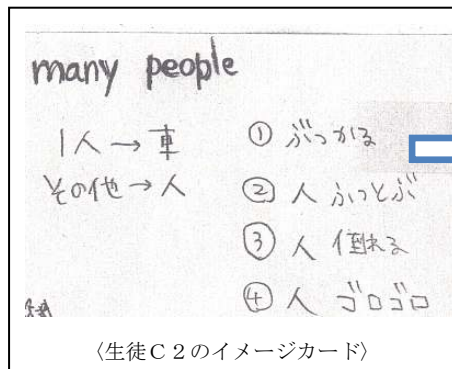 many people
1人→車
その他→人
① ぶつかる
② 人 ふっとぶ
③ 人 倒れる
④ 人 ゴロゴロ
〈生徒C2のイメージカード〉